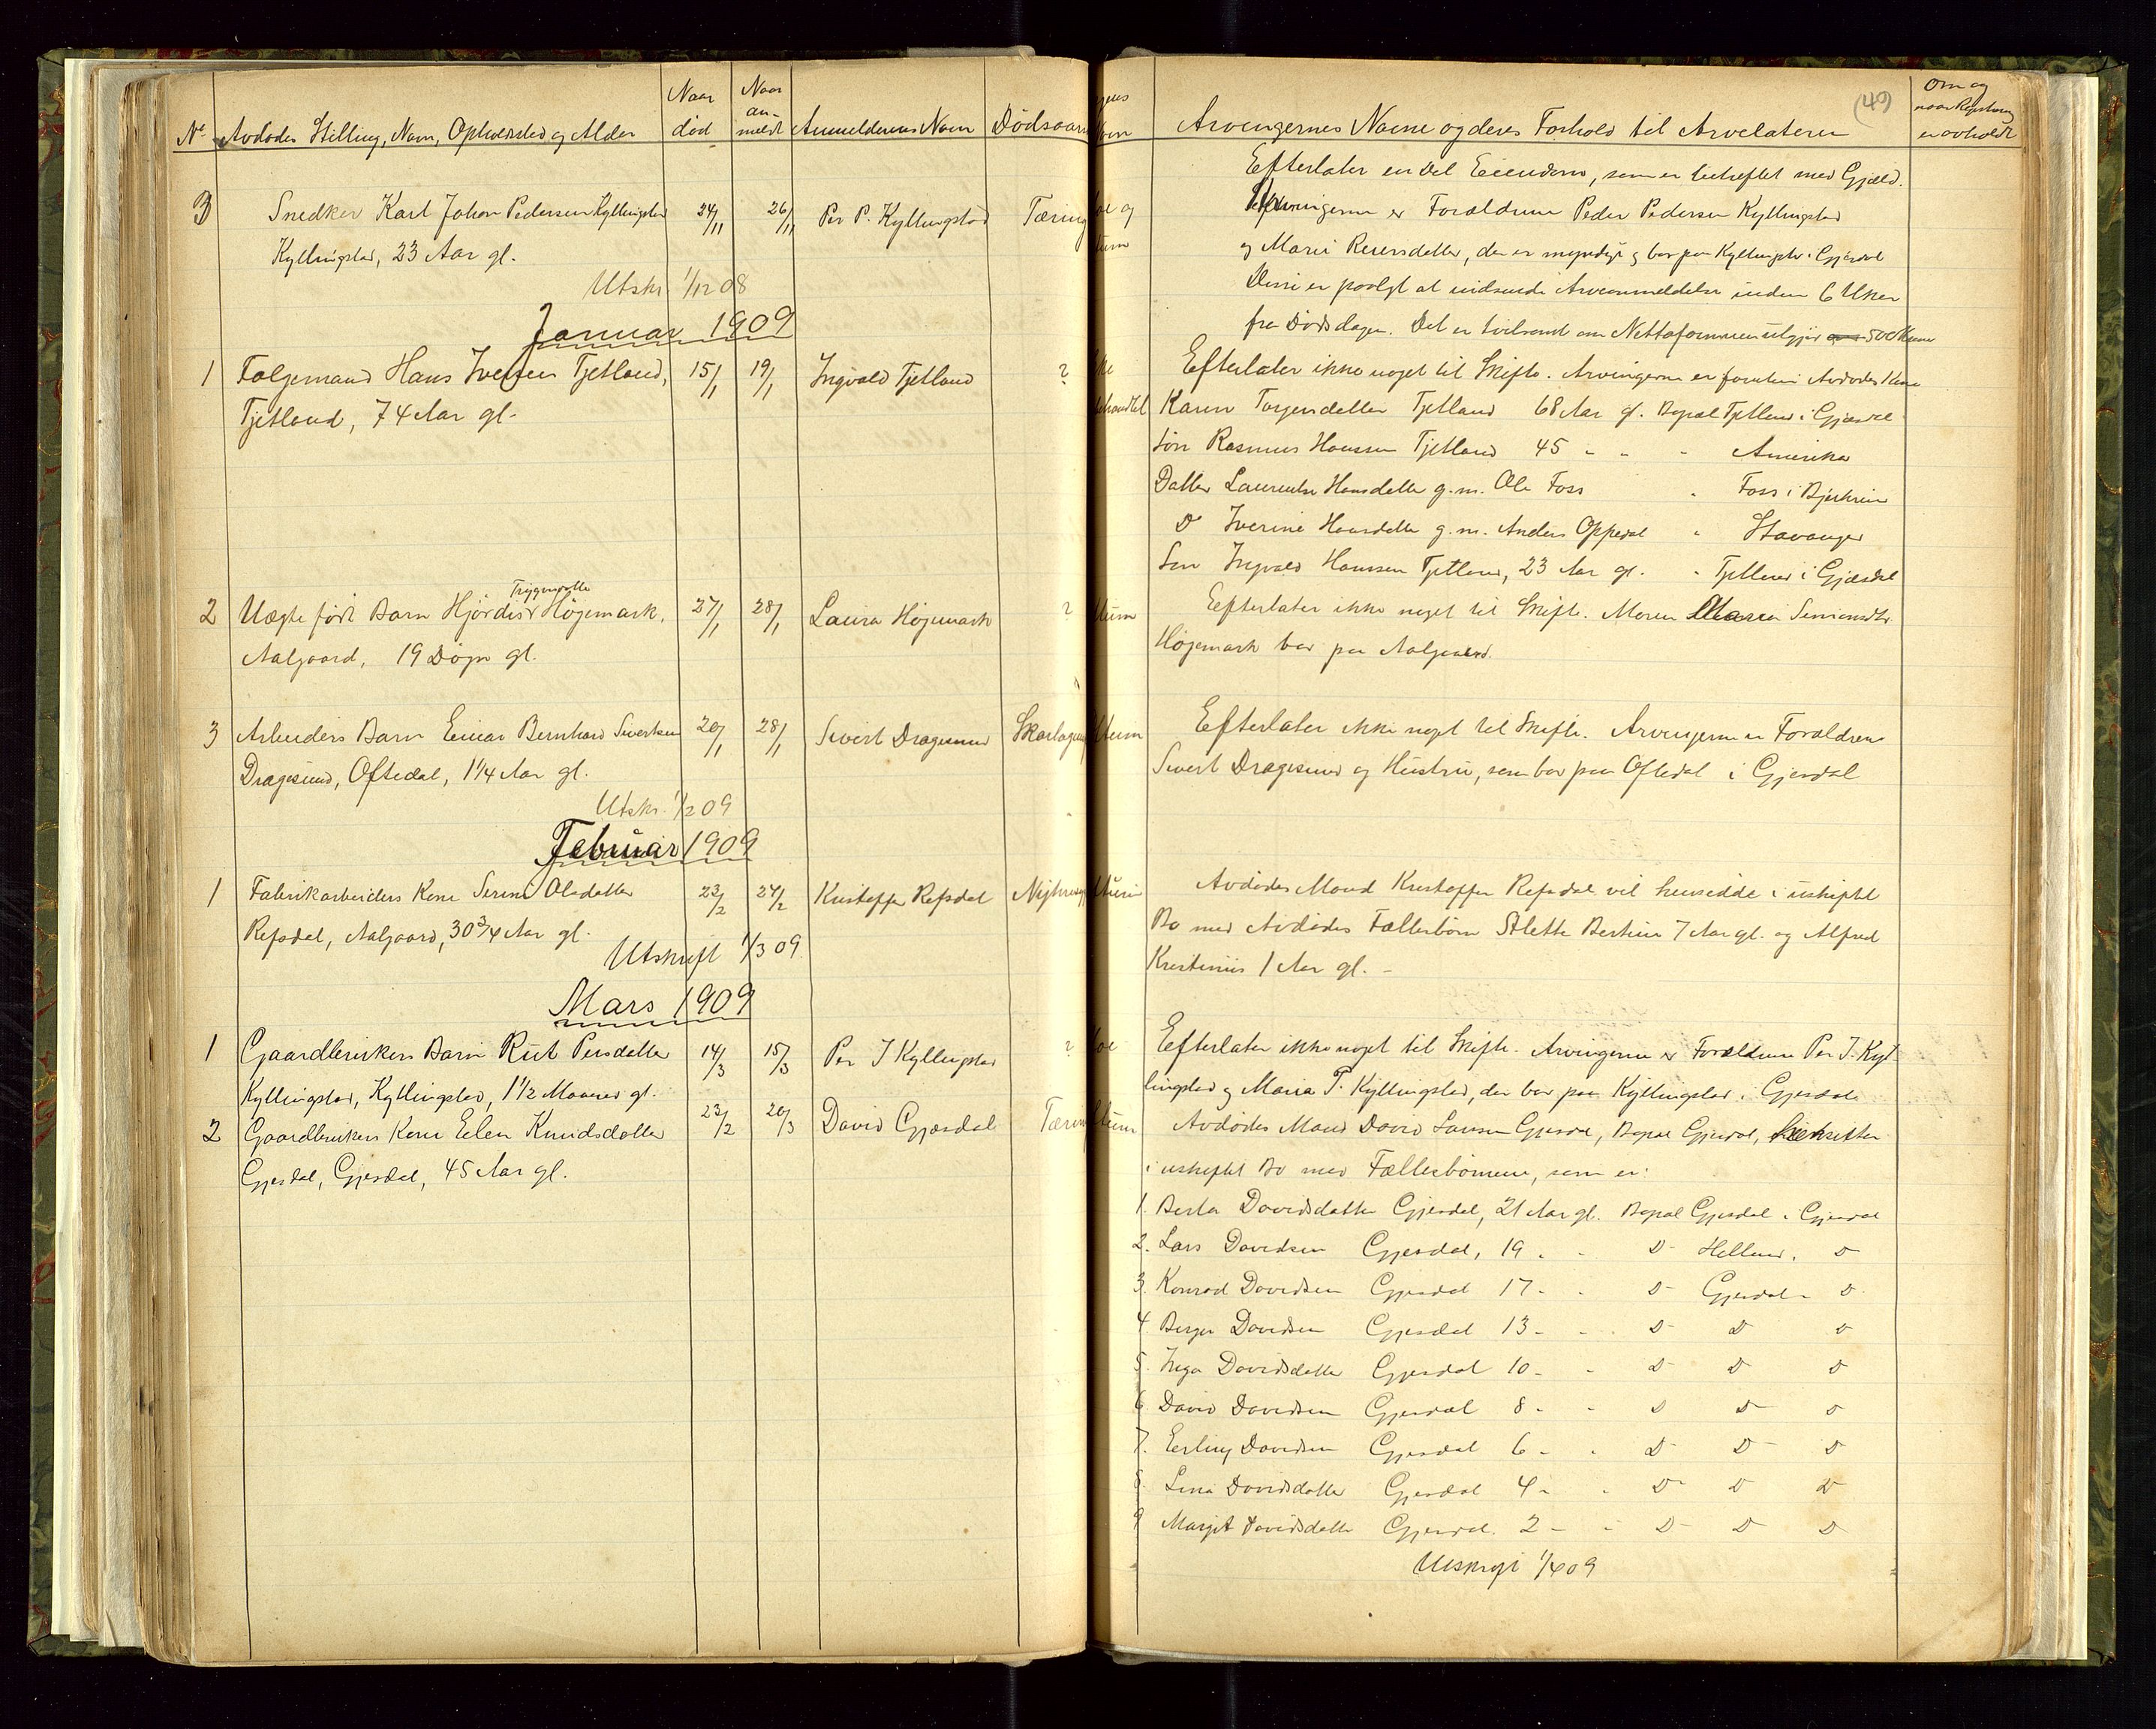 Nr. Avdødes Stilling, Navn, Opholdssted og Alder
Naar død
Naar an-meldt
Anmelderens Navn
Dødsaars
3 Snedker Karl Johan Pedersen Kyllingstad 24/11 26/11 Per P. Kyllingstad Tæring
Kyllingstad, 23 Aar gl.
Utskr. 1/12 08
Januar 1909
1 Følgemand Hans Iversen Tjetland, 15/1 19/1 Ingvald Tjetland ?
Tjetland, 74 Aar gl.
Trygvesdtr.
2 Uægte født Barn Hjördis Høgemark, 27/1 28/1 Laura Høgemark ?
Aalgaard, 19 Døgn gl.
3 Arbeiders Barn Einar Bernhard Sivertsen 20/1 28/1 Sivert Dragesund Skarlagen
Dragesund, Oftedal, 1 1/4 Aar gl.
Utskr. 1/2 09
Februar 1909
1 Fabrikarbeiders Kone Serine Olsdatter 23/2 24/2 Kristoffer Refsdal
Refsdal, Aalgaard, 30 3/4 Aar gl.
Utskrift 1/3 09
Mars 1909
1 Gaardbrukers Barn Rut Persdatter 14/3 15/3 Per J Kyllingstad ?
Kyllingstad, Kyllingstad, 1 1/2 Maaned gl.
2 Gaardbrukers Kone Elen Knudsdatter 23/2 20/3 David Gjesdal Tærin
Gjesdal, Gjesdal, 45 Aar gl.
Arvingernes Navne og deres Forhold til Arvelateren
(49)
Om og naar Registrering er avholdt
Efterlater en Del Eiendom, som er beheftet med Gjæld.
Arvingerne er Forældrene Peder Pedersen Kyllingstad
og Marie Reiersdatter, der er myndige og bor paa Kyllingstad i Gjesdal
Disse er paalagt at indsende Arveanmeldelse inden 6 Uker
fra Dødsdagen. Det er tvilsomt om Nettoformuen utgjør 500 Kroner
Efterlater ikke noget til Skifte. Arvingerne er foruten Avdødes Kone
Karen Torgersdatter Tjetland 68 Aar gl. Bopæl Tjetland i Gjesdal
Søn Rasmus Hansen Tjetland 45 " " " Amerika
Datter Laurentse Hansdatter g.m. Ole Foss " Foss i Bjerkrein
D° Iverine Hansdatter g.m. Anders Oppedal " Stavanger
Søn Ingvald Hansen Tjetland, 23 Aar gl. " Tjetland i Gjesdal
Efterlater ikke noget til Skifte. Moren Maria Simonsdtr.
Høgemark bor paa Aalgaard.
Efterlater ikke noget til Skifte. Arvingerne er Forældrene
Sivert Dragesund og Hustru, som bor paa Oftedal i Gjesdal
Avdødes Mand Kristoffer Refsdal vil hensidde i uskiftet
Bo med Avdødes Fællesbørn Aletta Bertine 7 Aar gl. og Alfred
Kristinius 1 Aar gl. -
Efterlater ikke noget til Skifte. Arvingerne er Forældrene Per J. Kyl-
lingstad og Maria T. Kyllingstad, der bor paa Kyllingstad i Gjesdal
Avdødes Mand David Larsen Gjesdal, Bopæl Gjesdal, hensitter
i uskiftet Bo med Fællesbørnene, som er:
1. Berta Davidsdatter Gjesdal, 21 Aar gl. Bopæl Gjesdal i Gjesdal
2. Lars Davidsen Gjesdal, 19 " " D° Helland i D°
3. Konrad Davidsen Gjesdal 17 " " D° Gjesdal " D°
4. Berger Davidsen Gjesdal 13 " " D° D° D°
5. Inga Davidsdatter Gjesdal 10 " " D° D° D°
6. David Davidsen Gjesdal 8 " " D° D° D°
7. Erling Davidsen Gjesdal 6 " " D° D° D°
8. Lina Davidsdatter Gjesdal 4 " " D° D° D°
9 Margit Davidsdatter Gjesdal. 2 " " D° D° D°
Utskrift 1/4 09